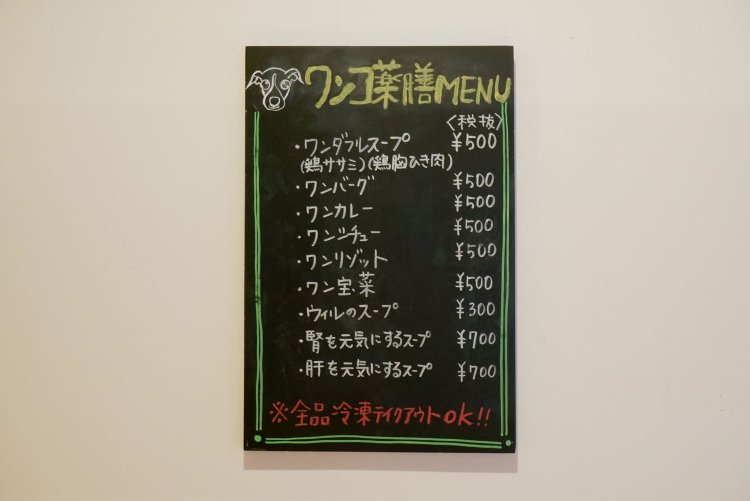 ワンコ薬膳MENU
〈税抜〉
・ワンダフルスープ ¥500
(鶏ササミ)(鶏胸ひき肉)
・ワンバーグ ¥500
・ワンカレー ¥500
・ワンシチュー ¥500
・ワンリゾット ¥500
・ワン宝菜 ¥500
・ウィルのスープ ¥300
・腎を元気にするスープ ¥700
・肝を元気にするスープ ¥700
※全品冷凍テイクアウトok!!